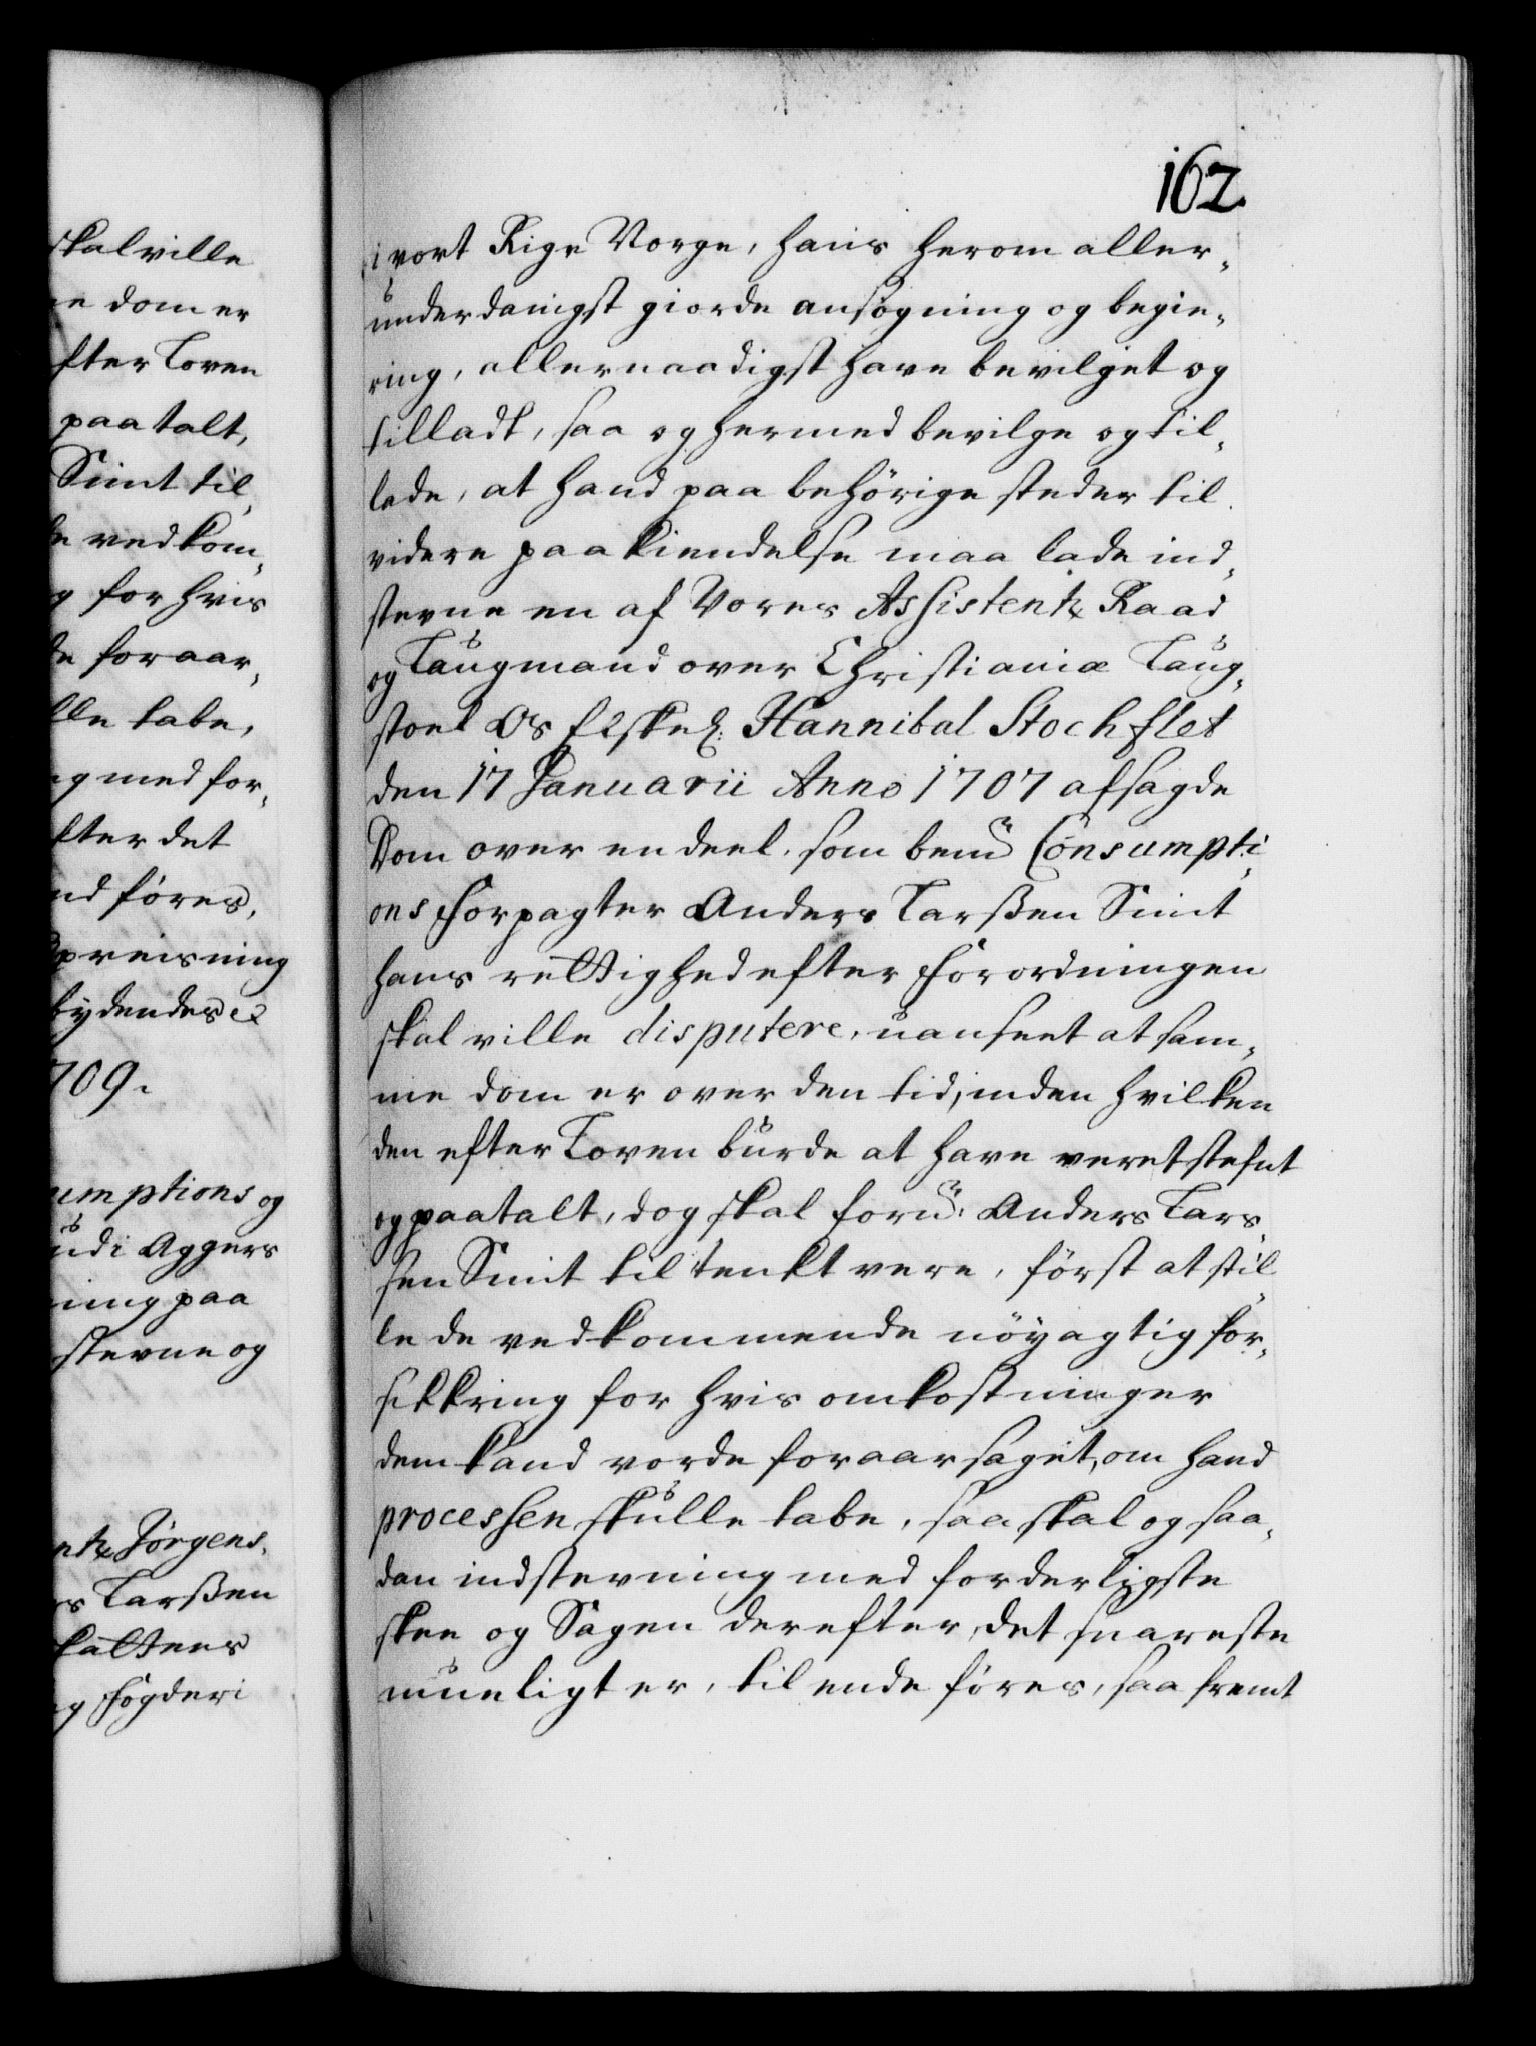 skal ville
ne dom er
fter Loven
paatalt,
Smit til
de vedkom,
g for hvis
de foraar,
lle tabe,
ng med for,
fter det
nd föres,
preisning
bydendes ec
709.
umptions og
ud i Aggers
ning paa
stevne og
Jørgens,
rs Larßen
kattens
g Fogderi
162.
i vort Rige Norge, hans herom aller,
underdanigst giorde ansøgning og begie,
ring, allernaadigst have bevilget og
tilladt, saa og hermed bevilge og til,
lade, at hand paa behörige steder til
videre paakiendelse maa lade ind,
stevne en af Vores Assistentz Raad
og Laugmand over Christianiæ Laug,
stoel Os Elskel: Hannibal Stochflet
den 17 Januarii Anno 1707 afsagde
Dom over en deel, som bemte Consumpti,
ons Forpagter Anders Larßen Smit
hans rettighed efter Forordningen
skal ville disputere, uanseet at sam,
me dom er over den tid, inden hvilken
den efter Loven burde at have veret stefnt
og paatalt, dog skal fornte Anders Lars,
sen Smit tiltenkt vere, först at stil,
le de vedkommende nöyagtig for,
sikkring for hvis omkostninger
dem kand vorde foraarsaget, om hand
processen skulle tabe, saa skal og saa,
dan indstevning med forderligste
skee og Sagen derefter, det snareste
mueligt er, til ende föres, saa fremt